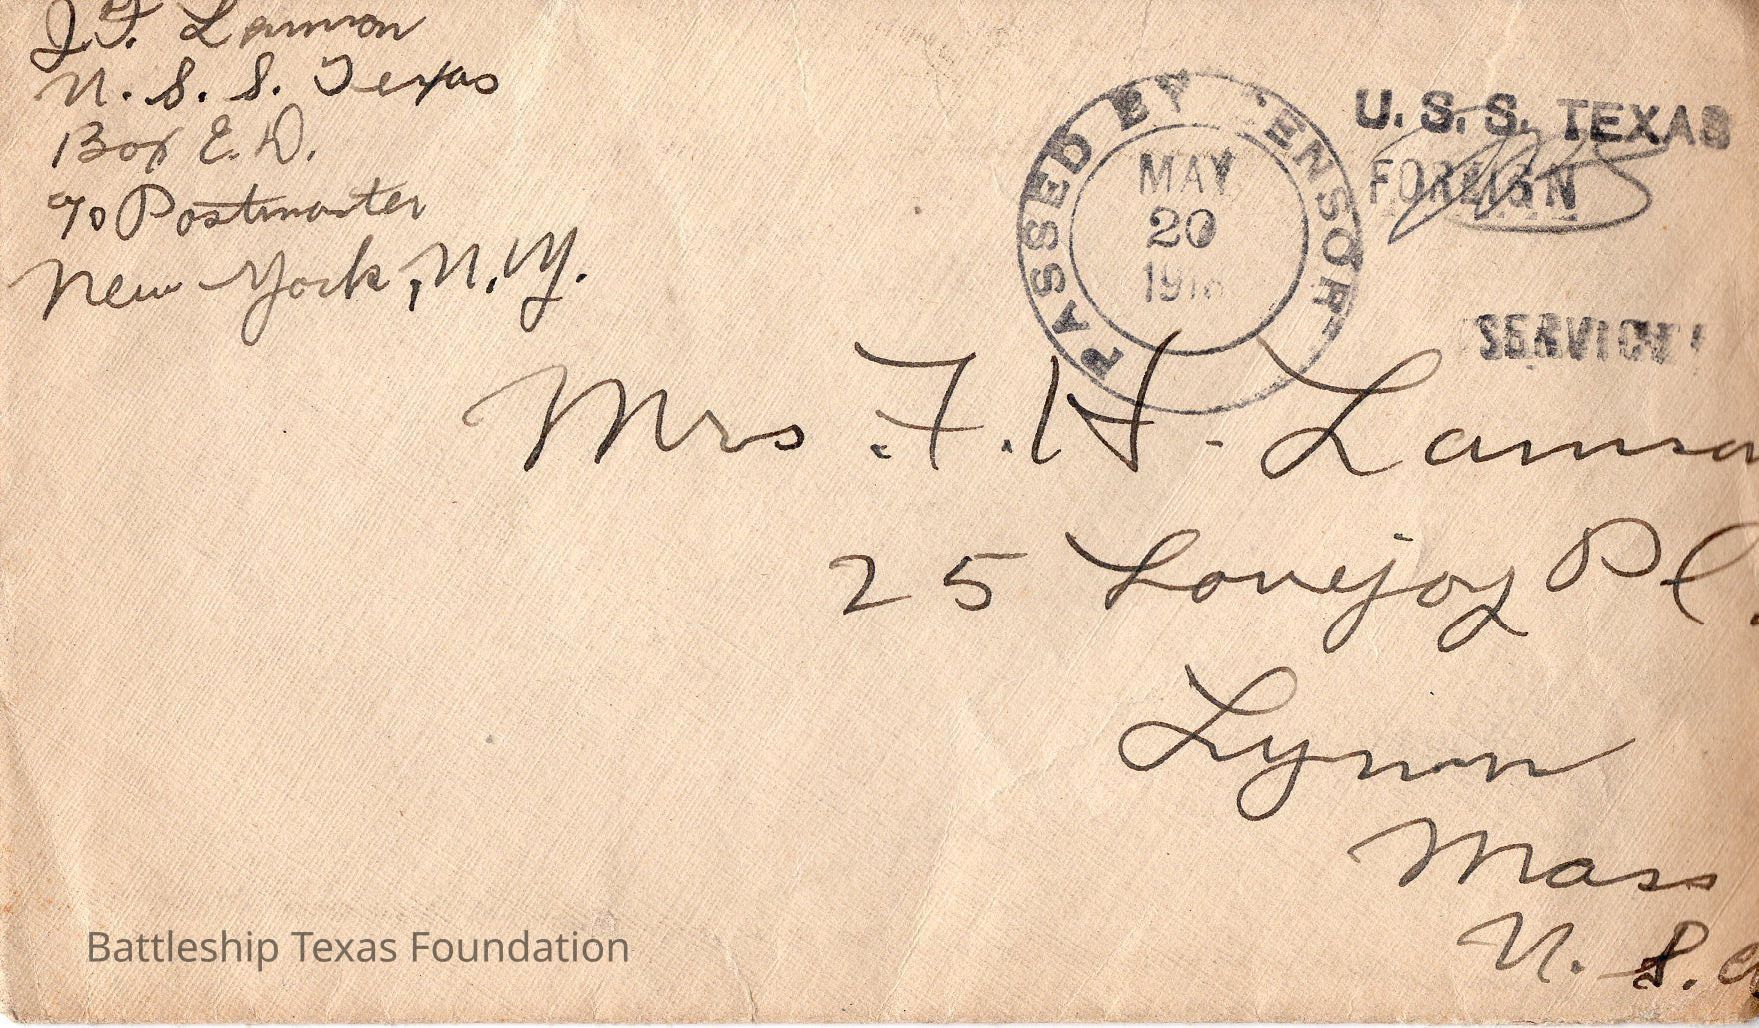 J.F. Lamson
U.S.S. Texas
Box E.D.
℅ Postmaster
New York, N.Y.
PASSED BY CENSOR
MAY
20
1918
U.S.S. TEXAS
FOREIGN
SERVICE
Mrs. F.H. Lamso
25 Lovejoy Pl.
Lynn
Mass
U.S.A
Battleship Texas Foundation